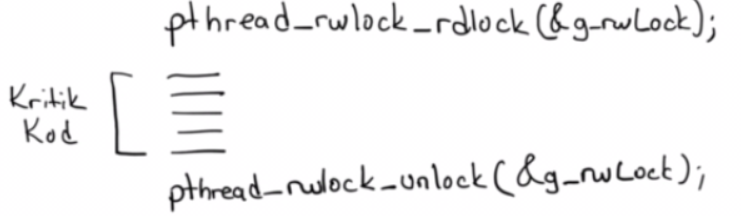 pthread_rwlock_rdlock(&g_rwLock);
Kritik
Kod
pthread_rwlock_unlock(&g_rwLock);